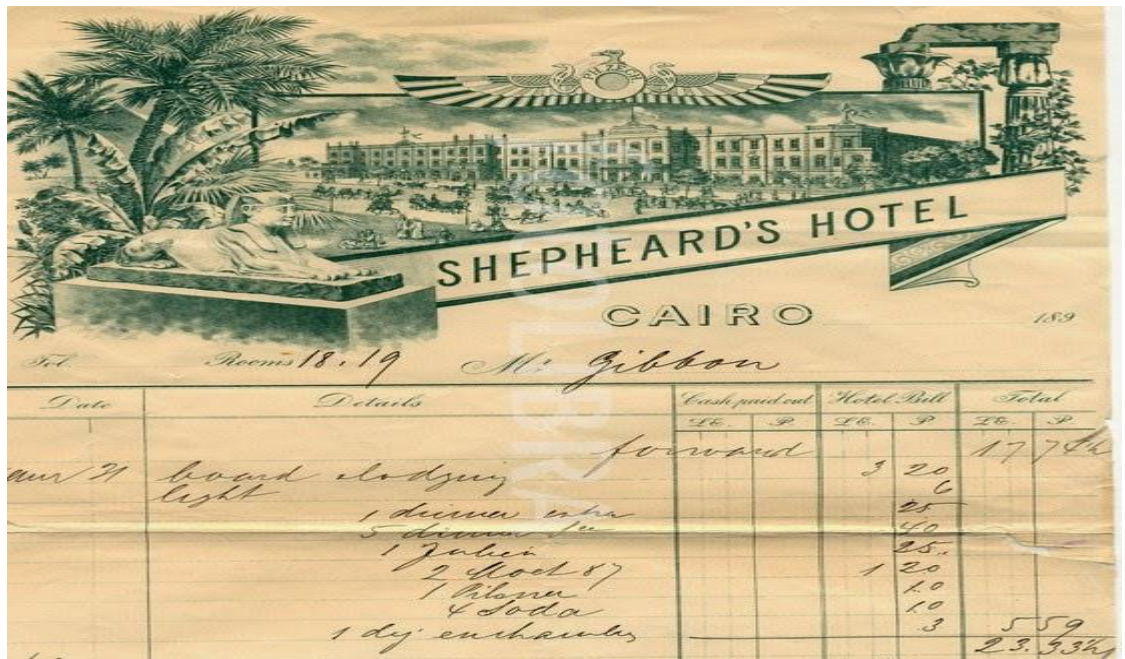 SHEPHEARD'S HOTEL
CAIRO
189
Fol. Rooms 18.19 Mr Gibbon
Date Details Cash paid out Hotel Bill Total
£E. P. £E. P £E. P
forward 17 74½
21 board lodging 3 20
light 6
1 dinner extra 25
5 dinner 40
1 Julien 25
2 Moet 87 1 20
1 Pilsner 10
4 Soda 10
1 dej. en chambre 3 5 59
23.33½